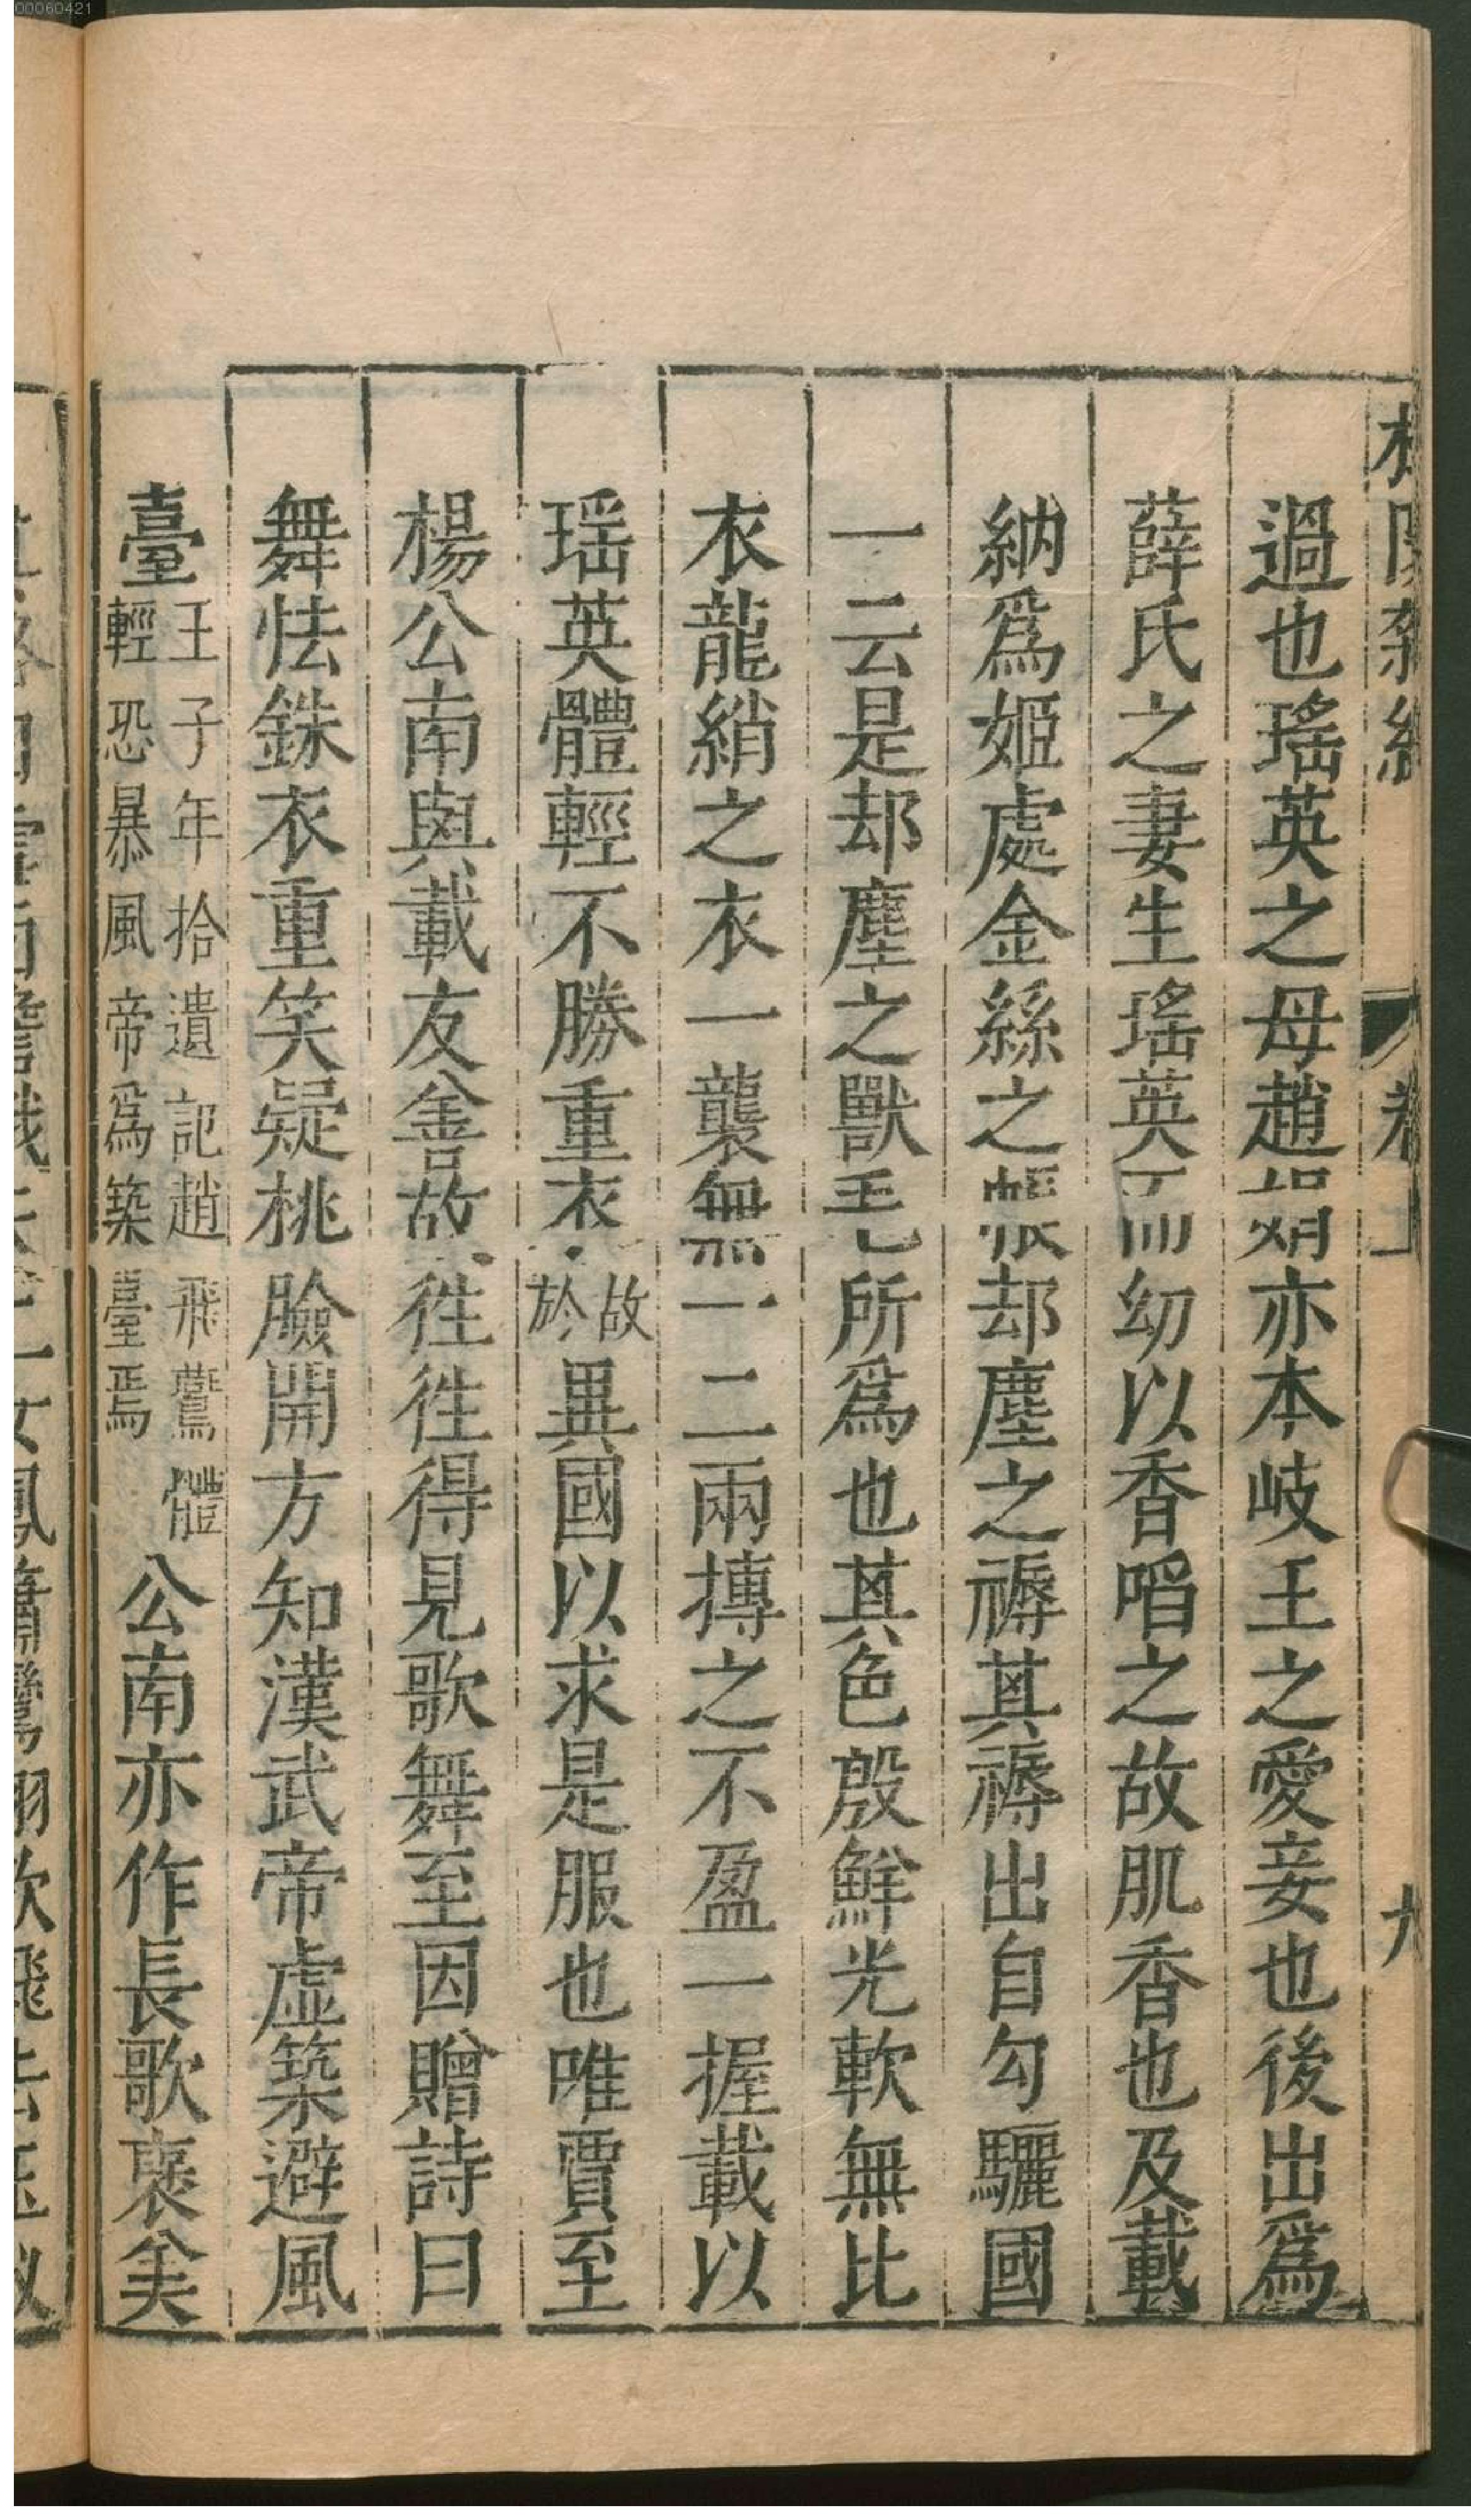 00060421
過也瑤英之母趙娟亦本岐王之愛妾也後出爲
薛氏之妻生瑤英而幼以香啗之故肌香也及載
納爲姬處金絲之帳却塵之褥其褥出自勾驪國
一云是却塵之獸毛所爲也其色殷鮮光軟無比
衣龍綃之衣一襲無一二兩摶之不盈一握載以
瑤英體輕不勝重衣故於異國以求是服也唯賈至
楊公南與載友善故徃徃得見歌舞至因贈詩曰
舞怯銖衣重笑疑桃臉開方知漢武帝虛築避風
臺王子年拾遺記趙飛鷰體輕恐暴風帝爲築臺焉公南亦作長歌褒美